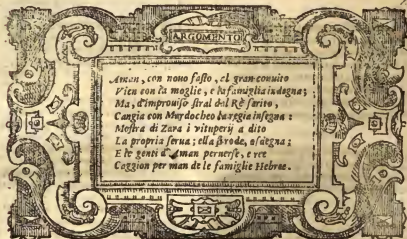 ARGOMENTO
Aman, con nouo fasto, al gran conuito
Vien con la moglie, e la famiglia indegna;
Ma, d'improuiso stral dal Rè ferito,
Cangia con Mardocheo la regia insegna:
Mostra di Zara i vituperij a dito
La propria serua; ella si rode, e sdegna;
E le genti d'Aman peruerse, e ree
Caggion per man de le famiglie Hebree.